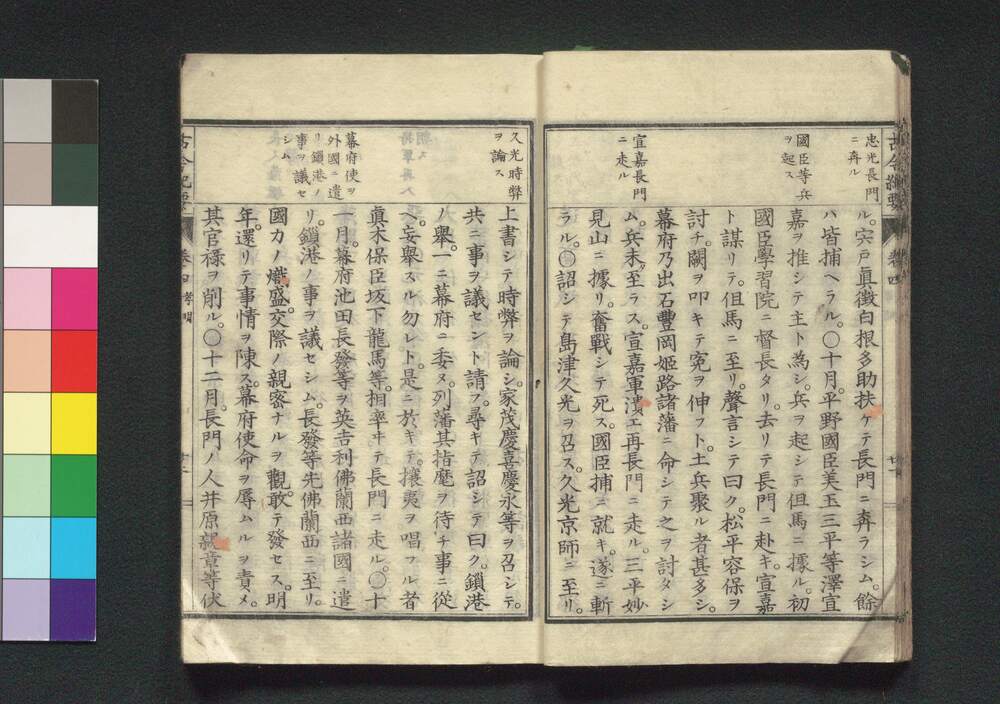 忠光長門
ニ奔ル
國臣等兵
ヲ起ス
宣嘉長門
ニ走ル
ル。宍戸眞徴白根多助扶ケテ長門ニ奔ラシム。餘
ハ皆捕ヘラル。〇十月。平野國臣美玉三平等澤宣
嘉ヲ推シテ主ト為シ。兵ヲ起シテ但馬ニ據ル。初
國臣學習院ニ督長タリ。去リテ長門ニ赴キ。宣嘉
ト謀リテ。但馬ニ至リ。聲言シテ曰ク。松平容保ヲ
討チ。闕ヲ叩キテ寃ヲ伸フト。土兵聚ル者甚多シ。
幕府乃出石豐岡姫路諸藩ニ命シテ之ヲ討タシ
ム。兵未至ラス。宣嘉軍潰エ再長門ニ走ル。三平妙
見山ニ據リ。奮戰シテ死ス。國臣捕ニ就キ。遂ニ斬
ラル。〇詔シテ島津久光ヲ召ス。久光京師ニ至リ。
久光時弊
ヲ論ス
幕府使ヲ
外國ニ遣
リ鎖港ノ
事ヲ議セ
シム
上書シテ時弊ヲ論シ。家茂慶喜慶永等ヲ召シテ。
共ニ事ヲ議セント請フ。尋キテ詔シテ曰ク。鎖港
ノ擧。一ニ幕府ニ委ヌ。列藩其指麾ヲ待チ事ニ從
ヘ。妄擧スル勿レト。是ニ於キテ。攘夷ヲ唱フル者
眞木保臣坂下龍馬等。相率ヰテ長門ニ走ル。〇十
一月。幕府池田長發等ヲ英吉利佛蘭西諸國ニ遣
リ。鎖港ノ事ヲ議セシム。長發等先佛蘭西ニ至リ。
國力ノ熾盛。交際ノ親密ナルヲ觀。敢テ發セス。明
年。還リテ事情ヲ陳ス。幕府使命ヲ辱ムルヲ責メ。
其官祿ヲ削ル。〇十二月。長門ノ人井原親章等伏
古今紀要
卷四 孝明